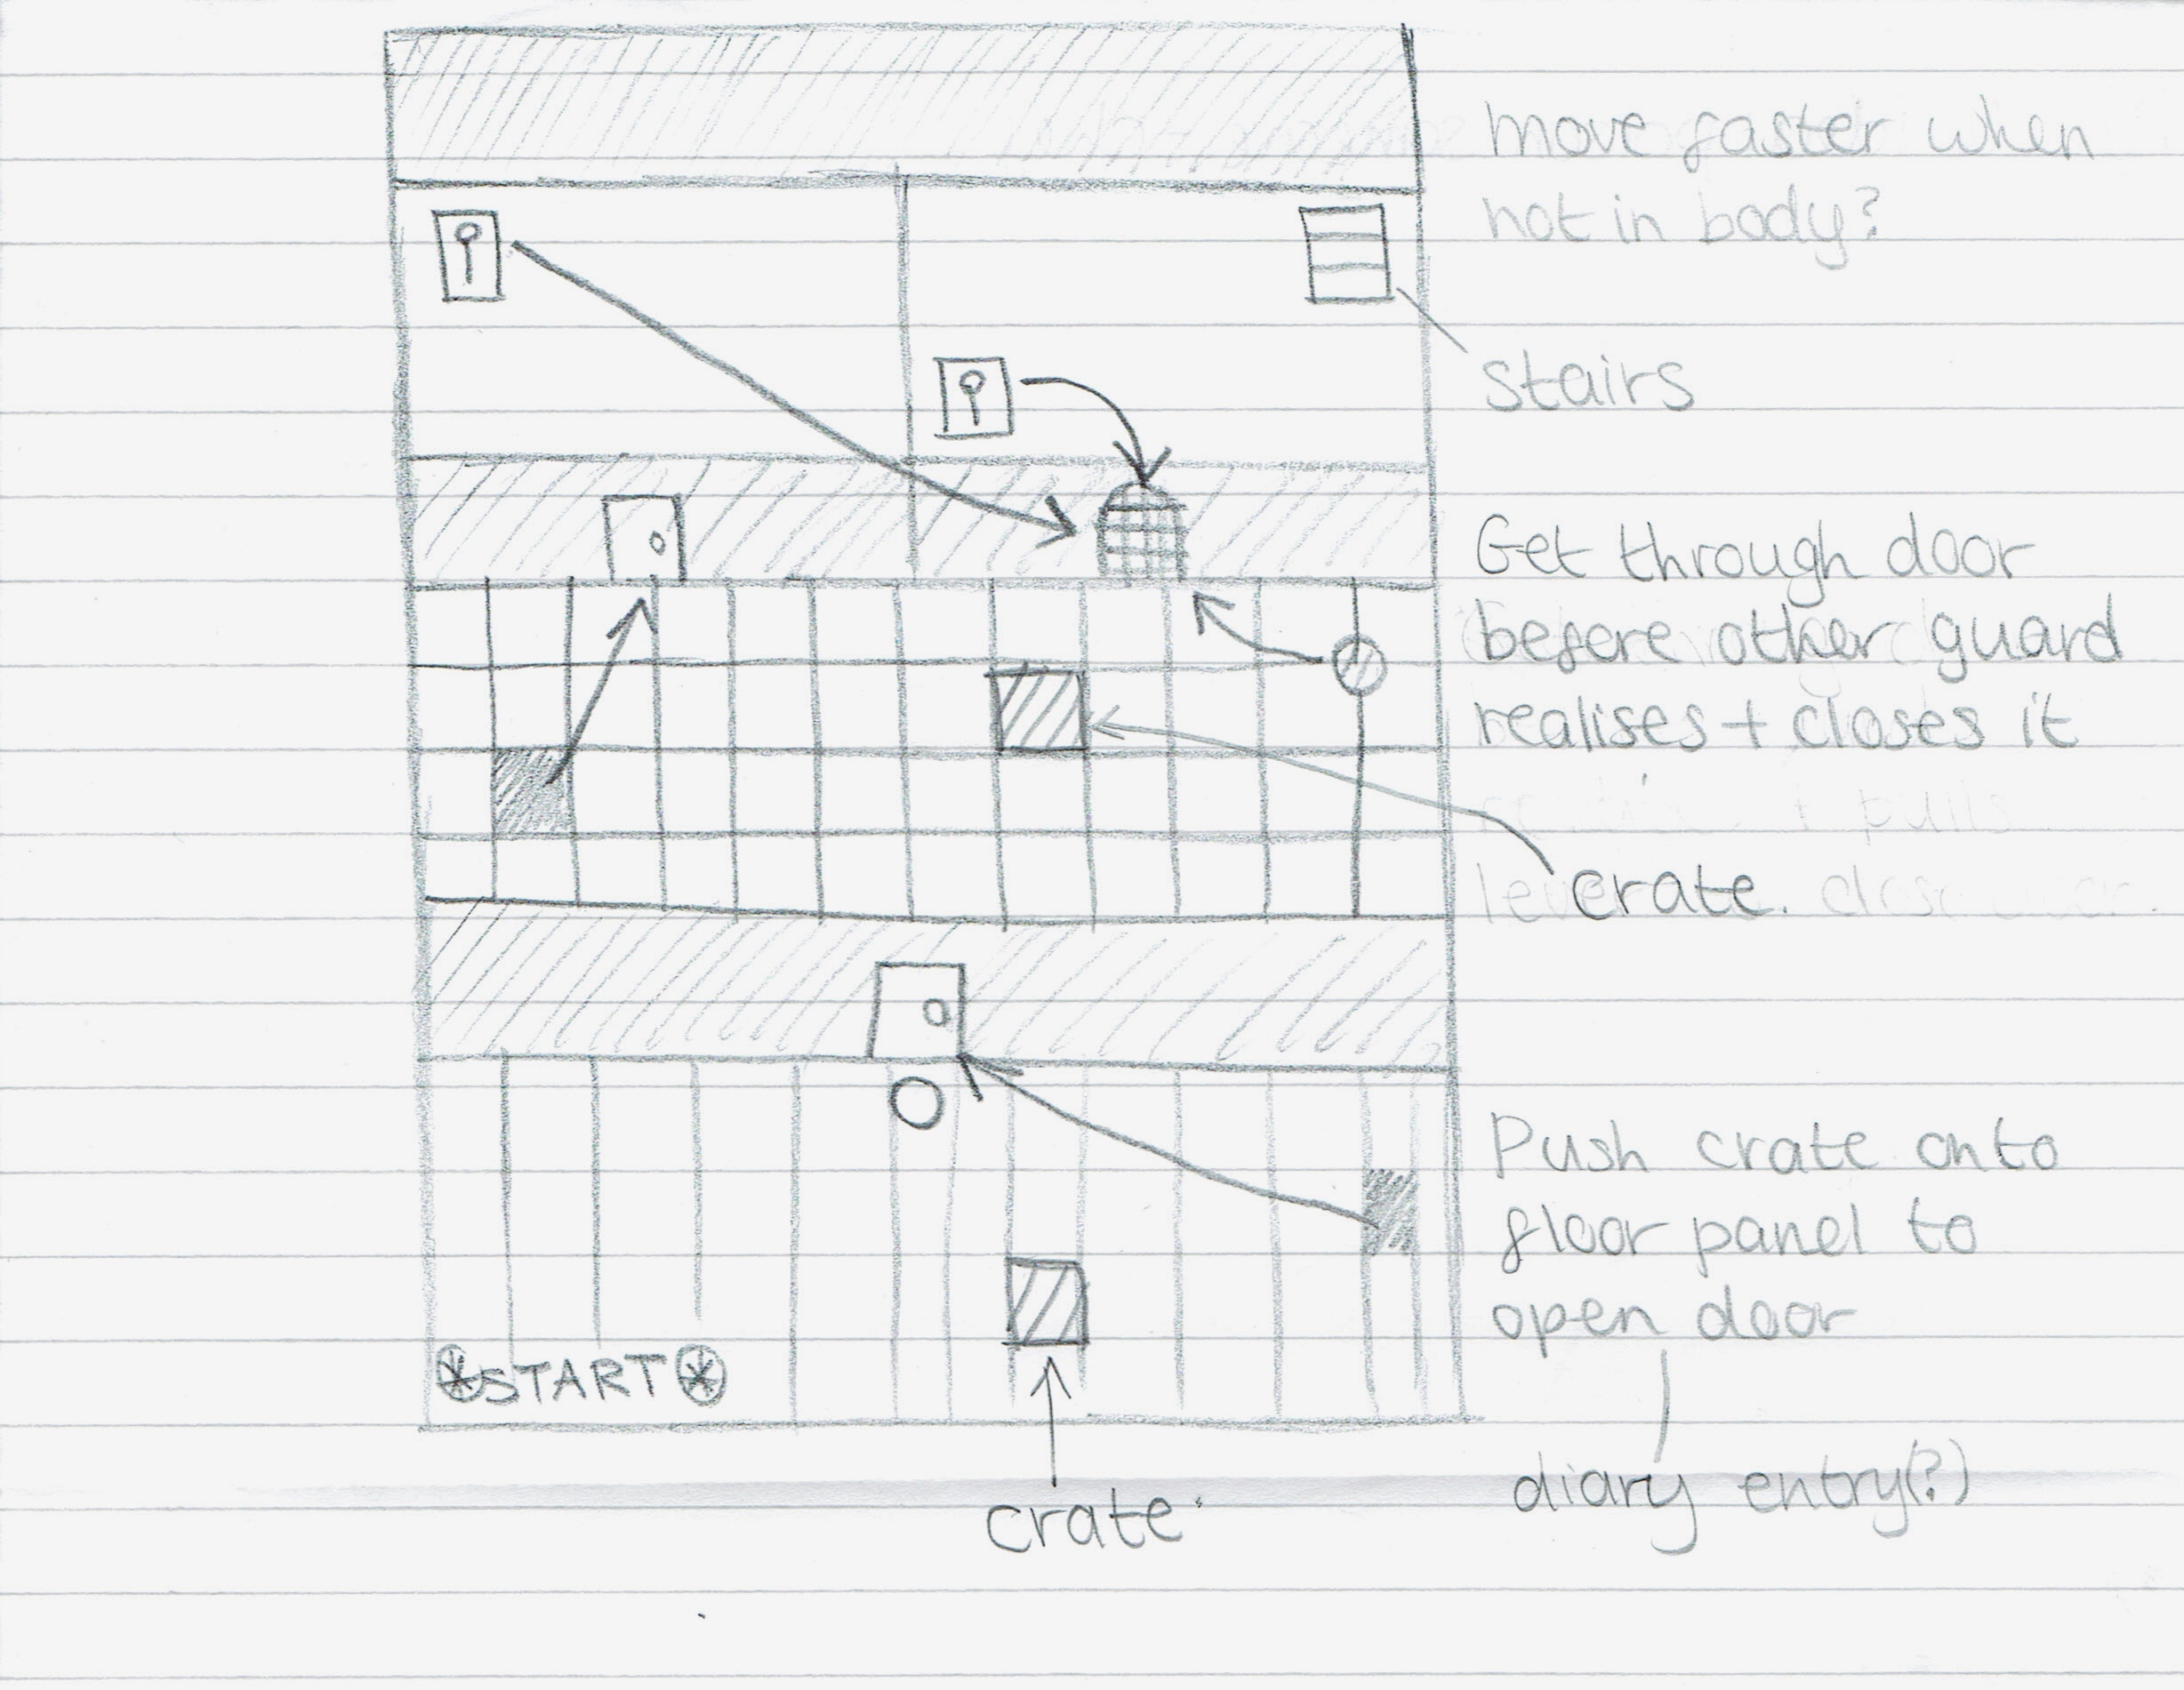 move faster when
not in body?
stairs
Get through door
before other guard
realises + closes it
pulls
crate.
Push crate onto
floor panel to
open door
START
diary entry(?)
crate